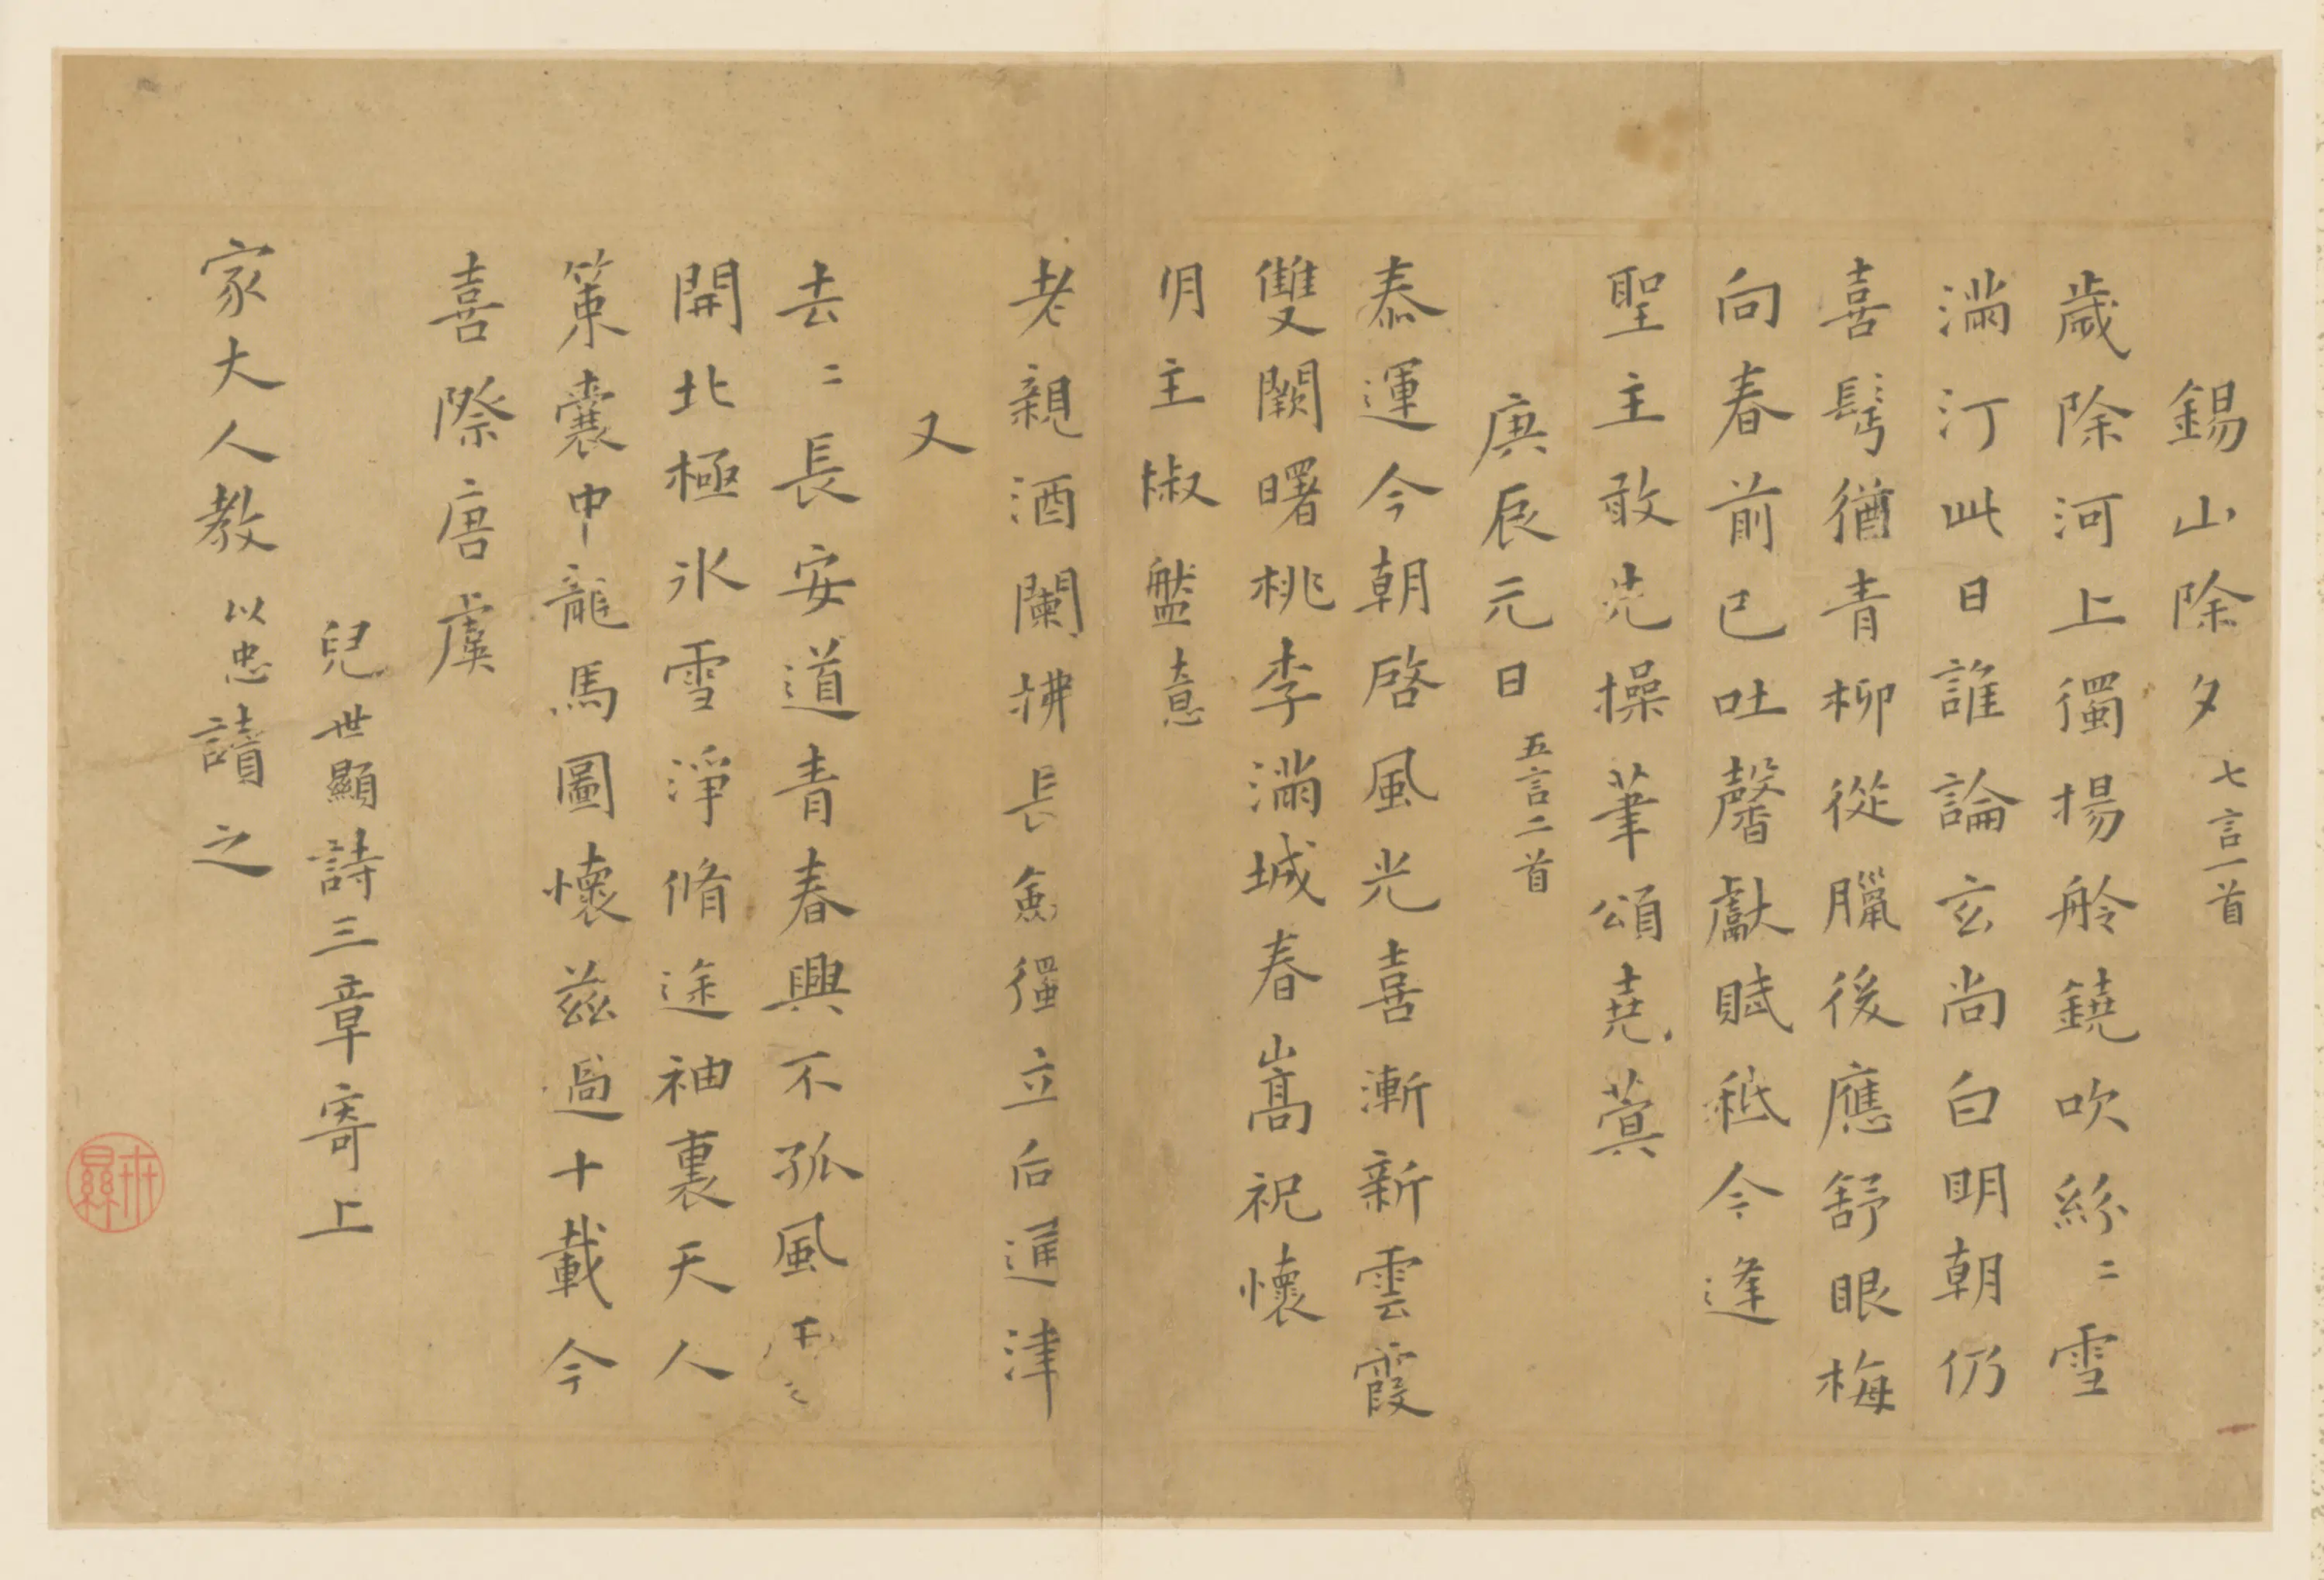 錫山除夕 七言一首
歲除河上獨揚舲鐃吹紛〻雪
滿汀此日誰論玄尚白明朝仍
喜鬢猶青柳從臘後應舒眼梅
向春前已吐馨獻賦秪今逢
聖主敢先操筆頌堯蓂
庚辰元日 五言二首
泰運今朝啓風光喜漸新雲霞
雙闕曙桃李滿城春嵩祝懷
明主椒盤意
老親酒闌拂長劍獨立后通津
又
去〻長安道青春興不孤風
開北極氷雪淨脩途袖裏天人
策囊中龍馬圖懷茲過十載今
喜際唐虞
兒世顯詩三章寄上
家大人教 以忠讀之
世顯